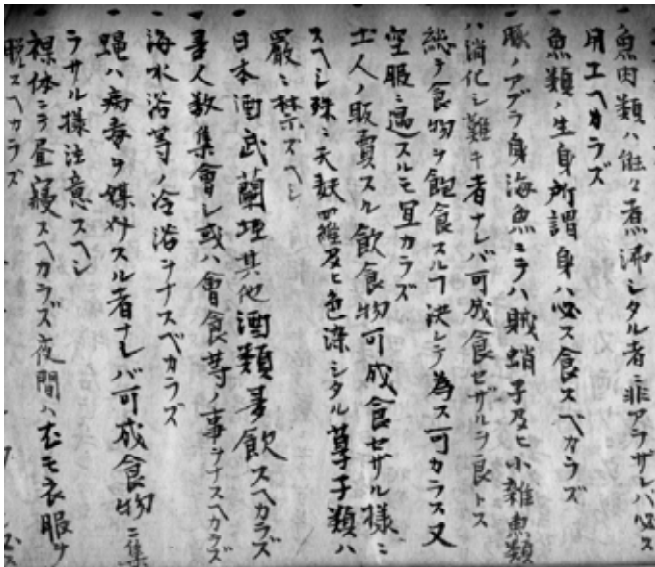 魚肉類ハ能ク煮沸シタル者ニ非アラザレバ必ス
用エヘカラズ
魚類ノ生身所謂身ハ必ス食スベカラズ
豚ノアブラ身海魚ニテハ賊蛸子及ヒ小雑魚類
ハ消化シ難キ者ナレバ可成食セザルヲ良トス
総テ食物ヲ飽食スルヿ決シテ為ス可カラス又
空服ニ過スルモ宜カラズ
土人ノ販賣スル飲食物可成食セザル様ニ
スヘシ殊ニ天麩羅及ヒ色染シタル菓子類ハ
嚴ニ禁示ズヘシ
日本酒武蘭垤其他酒類多飲スヘカラズ
多人数集會シ或ハ會食等ノ事ヲナスヘカラズ
海水浴等ノ冷浴ヲナスベカラズ
蝿ハ病毒ヲ媒介スル者ナレバ可成食物ニ集
ラサル様注意スヘシ
裸体ニテ昼寝スヘカラズ夜間ハ尤モ衣服ヲ
脱スヘカラズ